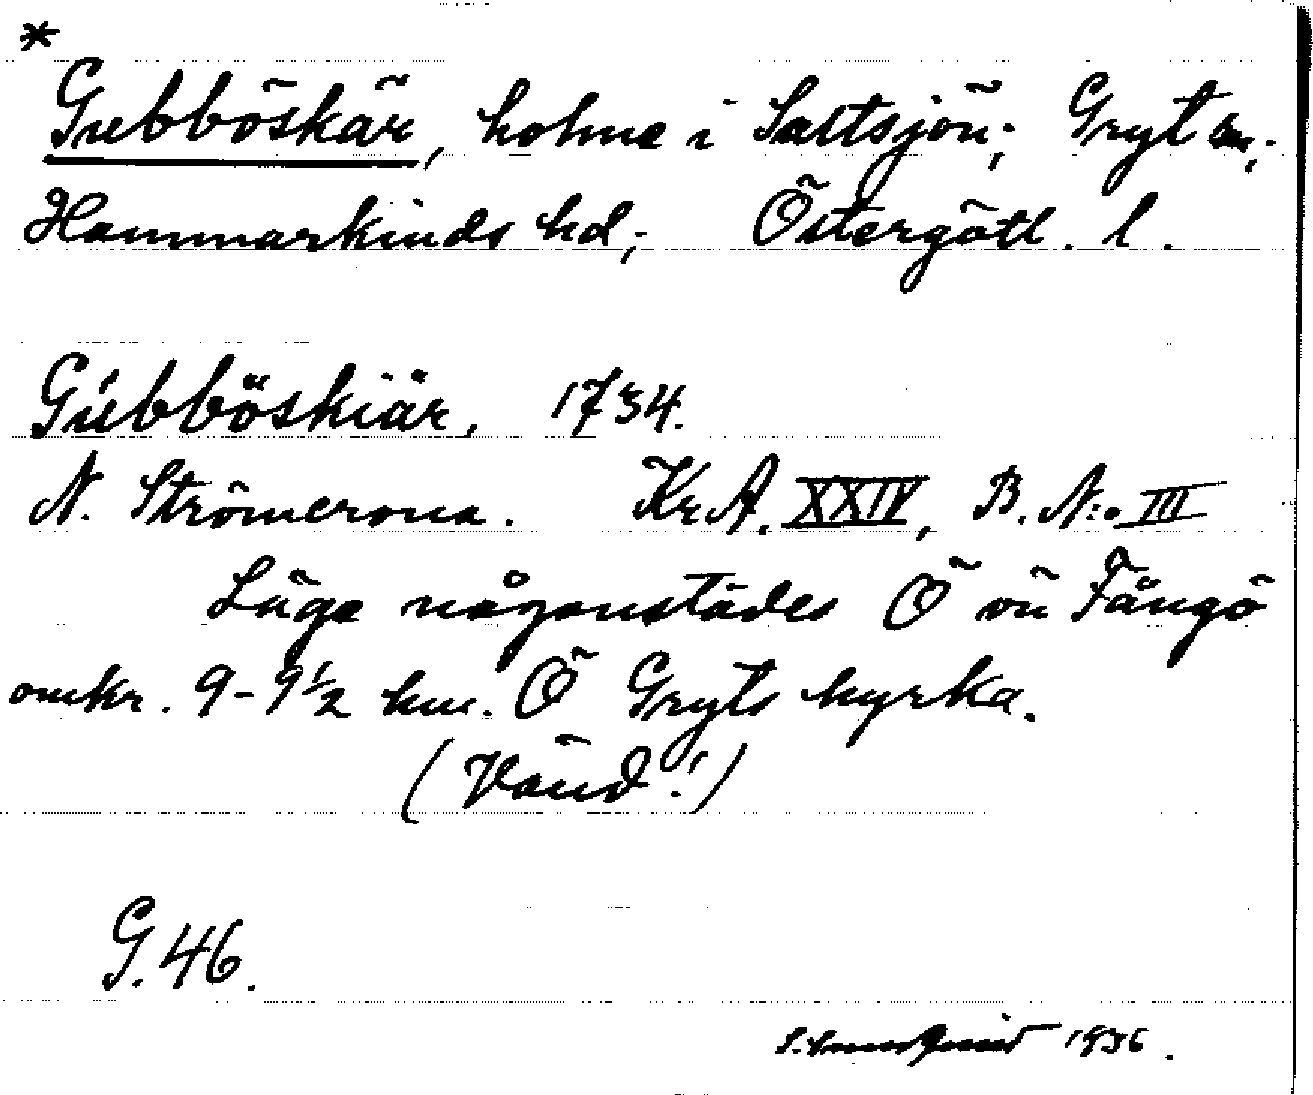 *
Gubböskär, holme i Saltsjön; Gryt sn,;
Hammarkinds hd,; Östergötl. l.
Gúbböskiär, 1734.
N. Strömcrona. Kr.A. XXIV, B. N:o III
Låge någonstädes Ö om Fångö
omkr. 9-9½ km. Ö Gryts kyrka.
(Vänd!)
G. 46.
1936.